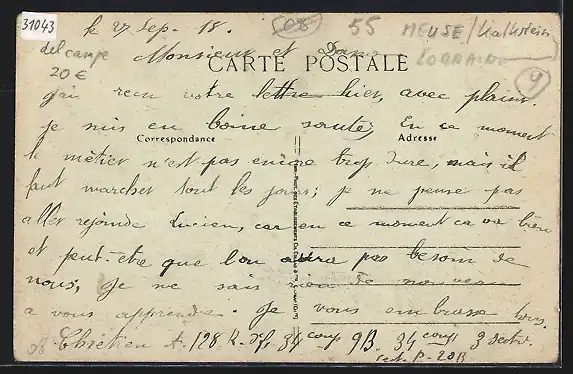 31043
le 27 Sep. 18.
C8
55
MEUSE/
LORRAINE
9
del campe
20 €
Monsieur et Dame
CARTE POSTALE
j'ai recu votre lettre hier, avec plaisir.
je suis en bonne santé, En ce moment
Correspondance
Adresse
le métier n'est pas encore trop dure, mais il
faut marcher tout les jours; je ne pense pas
aller rejoindre Lucien, car en ce moment ca va bien
et peut-être que l'on aura pas besoin de
nous, Je ne sais rien de nouveau
a vous apprendre. Je vous embrasse tous.
Chrétien A. 128 R. Inf. 34 coup 9B. 34 coup 3 Section
sect. P. 20B